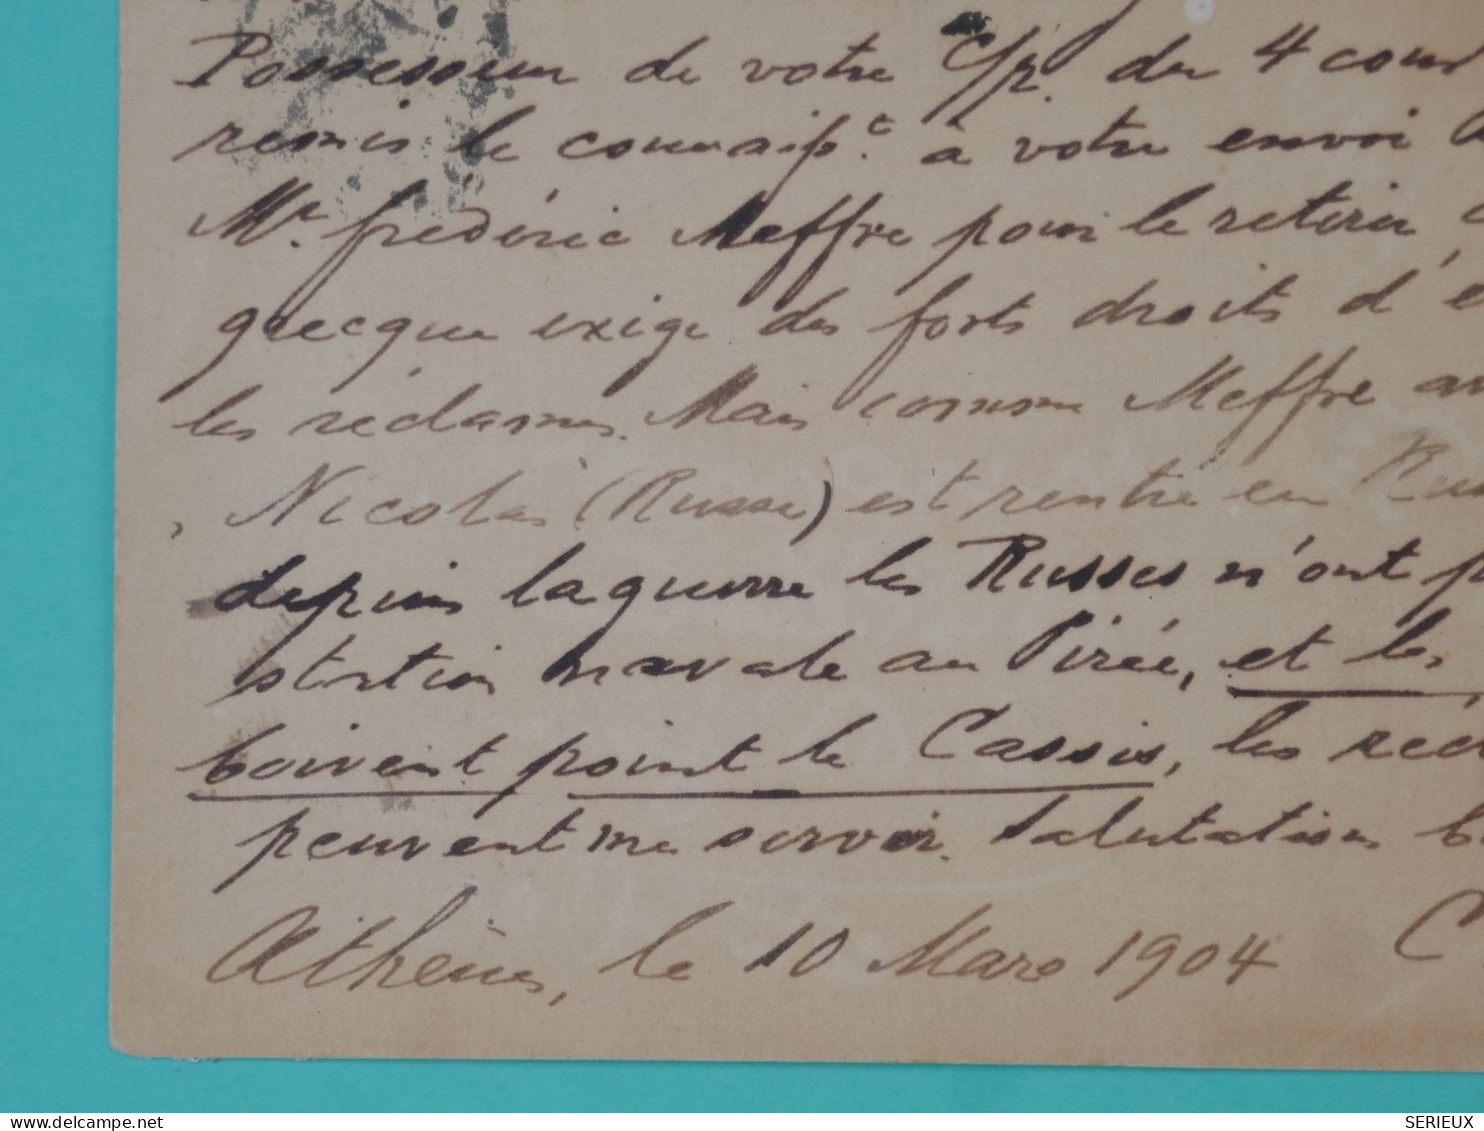 Possesseur de votre C/p. du 4 cour
remis le connaiss.t à votre envoi
Mr. frédéric Meffre pour le retirer
grecque exige des forts droits d'e
les réclames. Mais comme Meffre av
Nicolas (Russe) est rentré en Rus
depuis la guerre les Russes n'ont p
station navale au Pirée, et les
boivent point le Cassis, les réc
peuvent me servir. Salutations
Athènes, le 10 Mars 1904 C
delcampe.net
SERIEUX